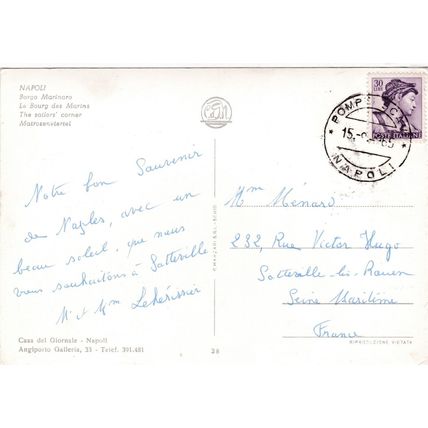 NAPOLI
Borgo Marinaro
Le Bourg des Marins
The sailors' corner
Matrosenviertel
Notre bon Souvenir
de Naples, avec un
beau soleil, que nous
vous souhaitons à Sotteville
Mr et Mme Lehérissier
Casa del Giornale - Napoli
Angiporto Galleria, 33 - Telef. 391.481
28
30
POSTE ITALIANE
POMPEI SC
15
NAPOLI
Mme Ménard
232, Rue Victor Hugo
Sotteville-lès-Rouen
Seine Maritime
France
RIPRODUZIONE VIETATA